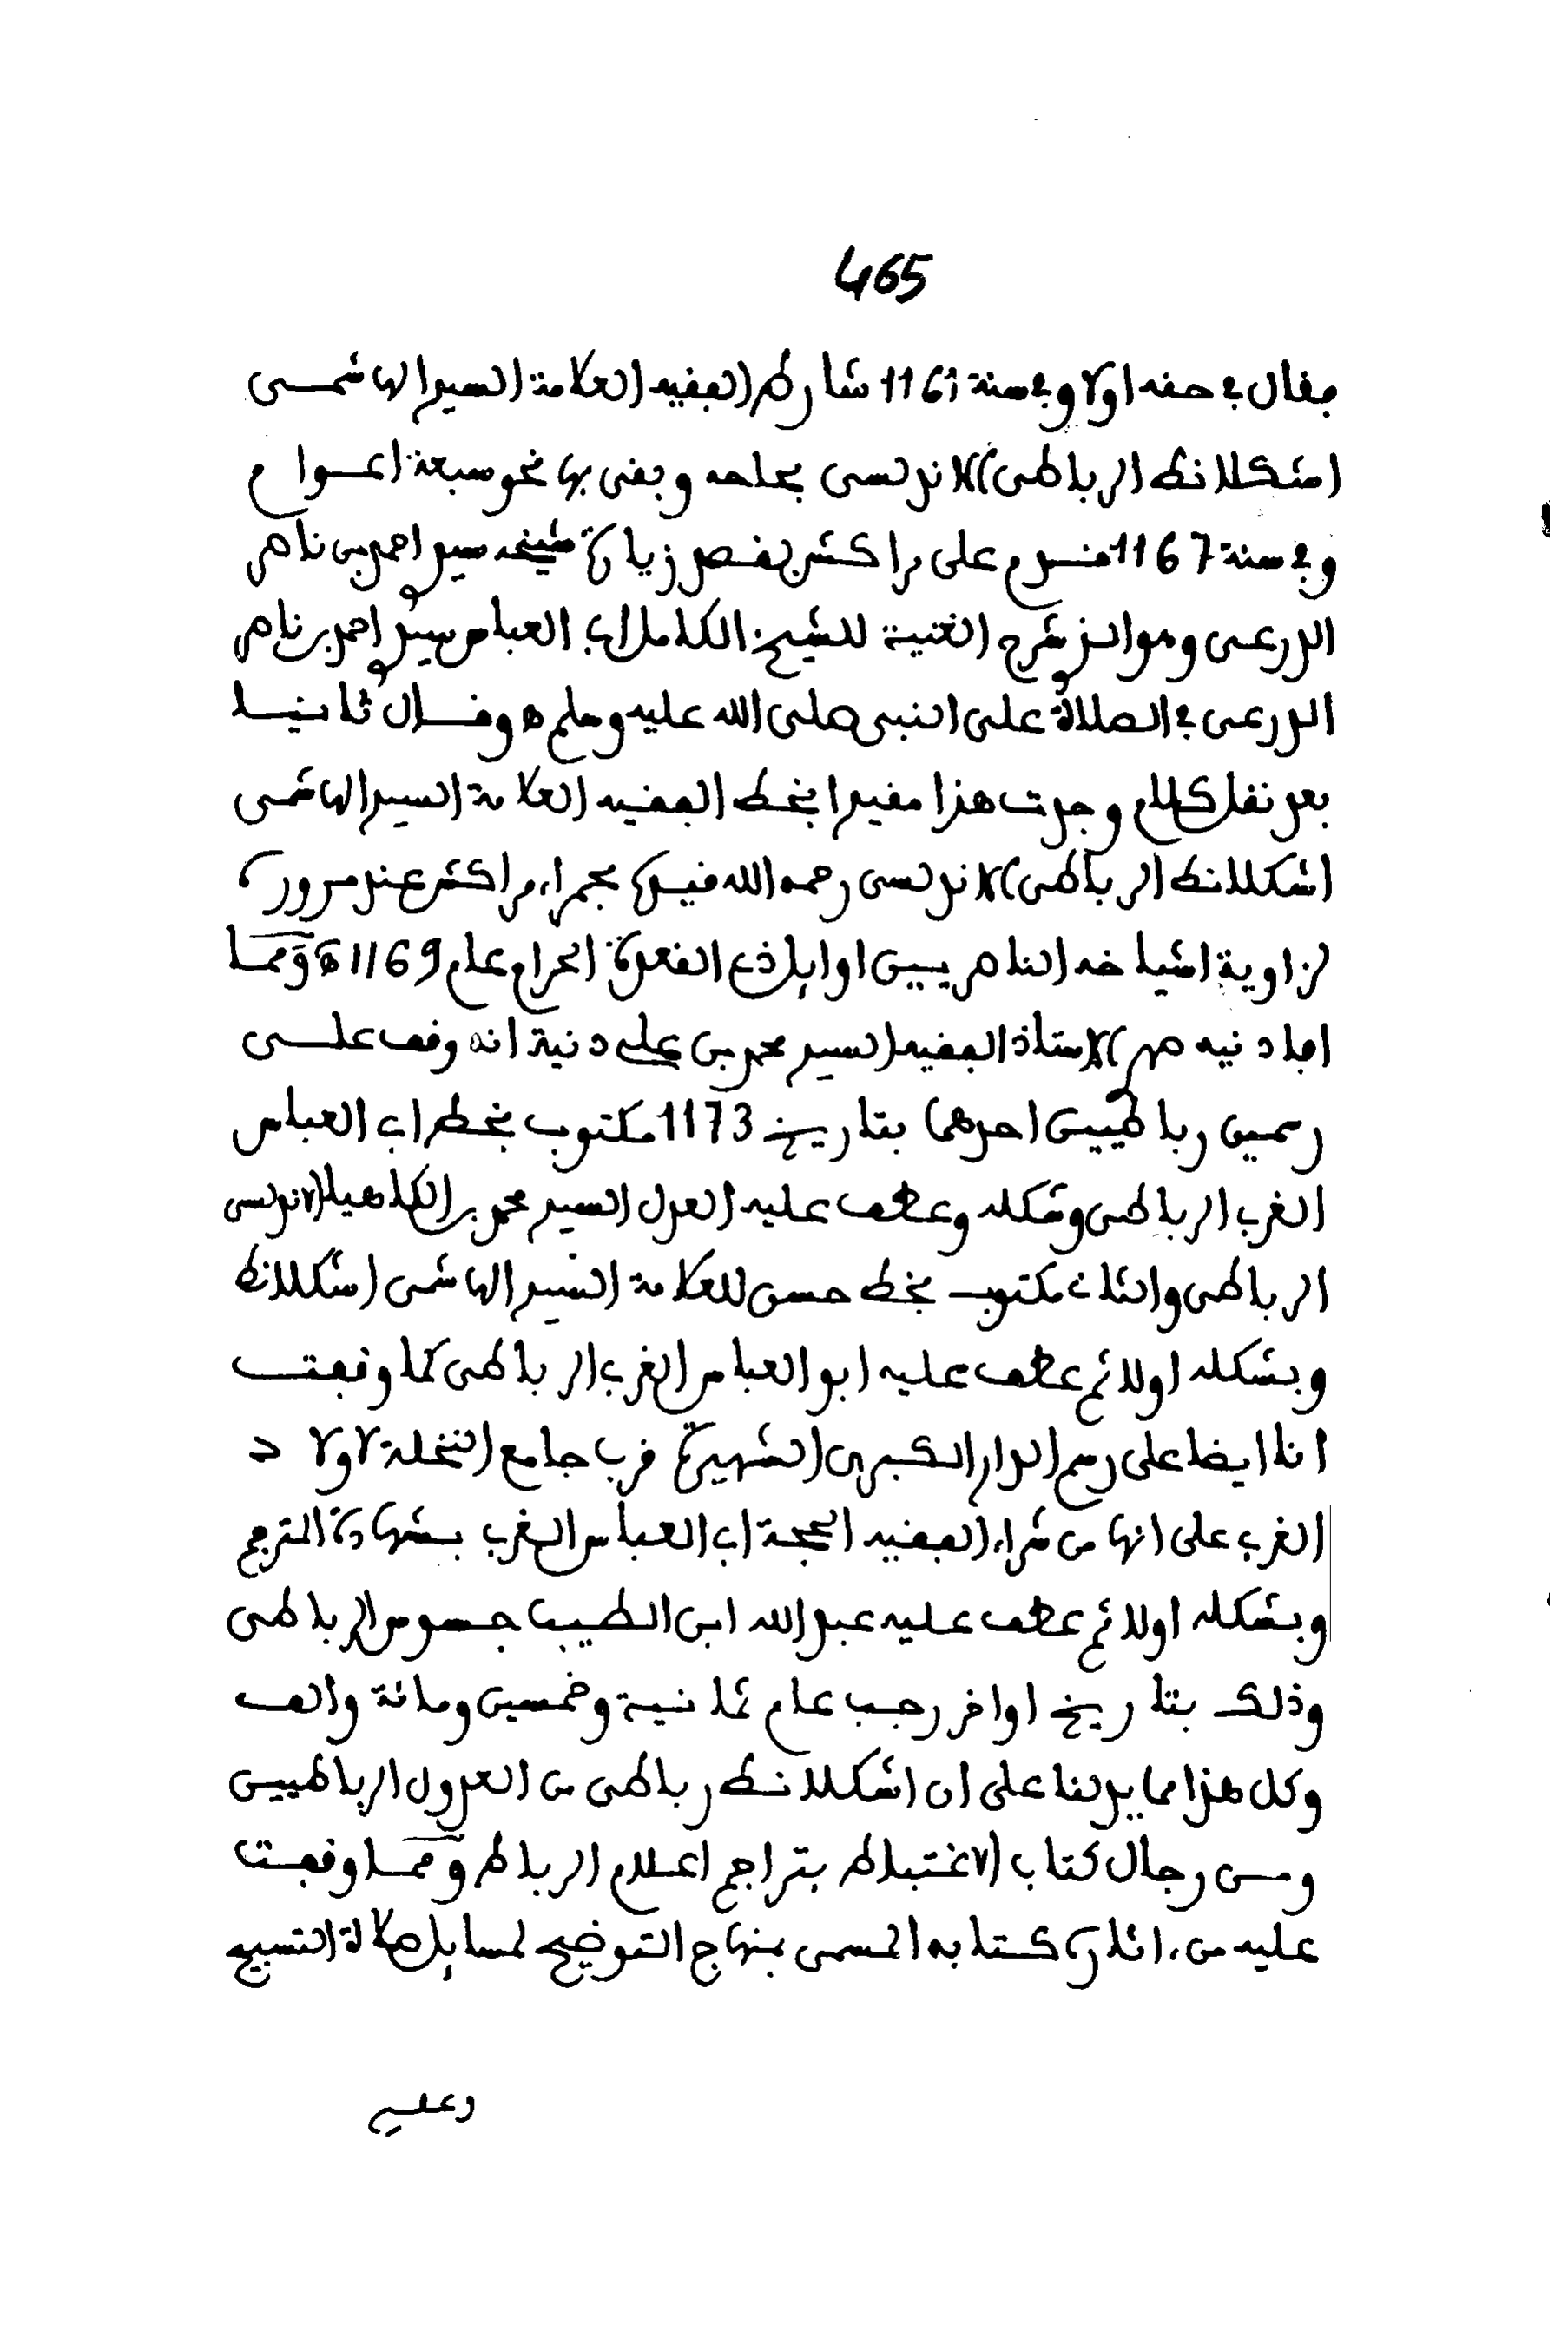 465
فقال في حقه اولا وفي سنة 1161 شارط الفقيه العلامة السيد الهاشمي
اشكلانط الرباطي الاندلسي بحاحه وبقي بها نحو سبعة اعوام
وفي سنة 1167 قدم على مراكش بقصد زيارة شيخه سيدي احمد بن ناصر
الدرعي وهو الذي شرح الغنية للشيخ الكامل ابي العباس سيدي احمد بن ناصر
الدرعي في الصلاة على النبي صلى الله عليه وسلم ه وقال ثانيا
بعد نقل كلام وجدت هذا مقيدا بخط الفقيه العلامة السيد الهاشمي
اشكلانط الرباطي الاندلسي رحمه الله قيده بحمراء مراكش عند مروره
لزاوية اشياخه الناصريين اوايل ذي القعدة الحرام عام 1169 ه ومما
افادنيه صهري الاستاذ الفقيه السيد محمد بن علي دنية انه وقف على
رسمين رباطيين احدهما بتاريخ 1173 مكتوب بخط ابي العباس
الغربي الرباطي وشكله وعطف عليه العدل السيد محمد بن الكاهية الاندلسي
الرباطي والثاني مكتوب بخط حسن للعلامة السيد الهاشمي اشكلانط
وبشكله اولا ثم عطف عليه ابو العباس الغربي الرباطي كما وقفت
انا ايضا على رسم الدار الكبرى الشهيرة قرب جامع النخلة لاولاد
الغربي على انها من شراء الفقيه الحجة ابي العباس الغربي بشهادة المترجم
وبشكله اولا ثم عطف عليه عبد الله ابن الطيب جسوس الرباطي
وذلك بتاريخ اواخر رجب عام ثمانية وخمسين ومائة والف
وكل هذا مما يدلنا على ان اشكلانط رباطي من العدول الرباطيين
ومن رجال كتاب الاغتباط بتراجم اعلام الرباط ومما وقفت
عليه من ءاثاره كتابه المسمى بمنهاج التوضيح لمسايل صلاة التسبيح
وعليه